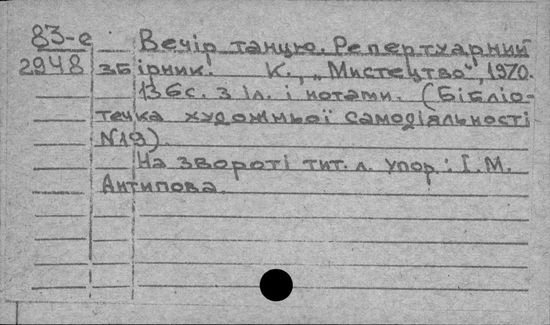 83-е Вечір танцю. Репертуарний
2948 збірник. К., „Мистецтво", 1970.
136с. з іл. і нотами. (Бібліо-
течка художньої самодіяльності
N19).
На звороті тит. л. упор.: І.М.
Антипова.